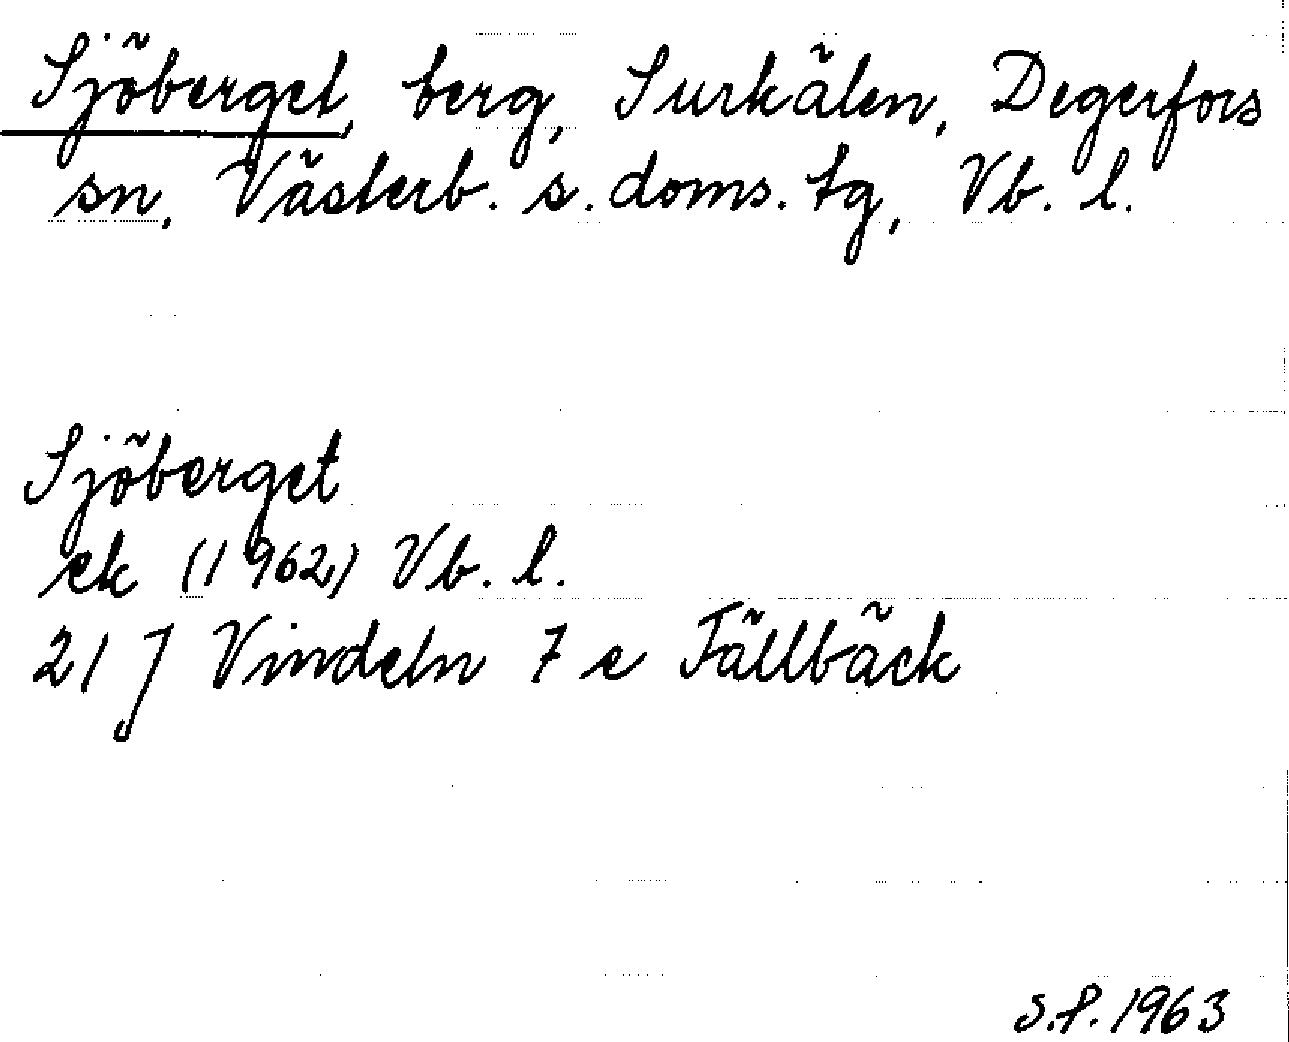 Sjöberget, berg, Surkälen, Degerfors
sn, Västerb. s. doms. tg, Vb. l.
Sjöberget
ek (1962) Vb. l.
21 J Vindeln 7 e Fällbäck
S.P. 1963